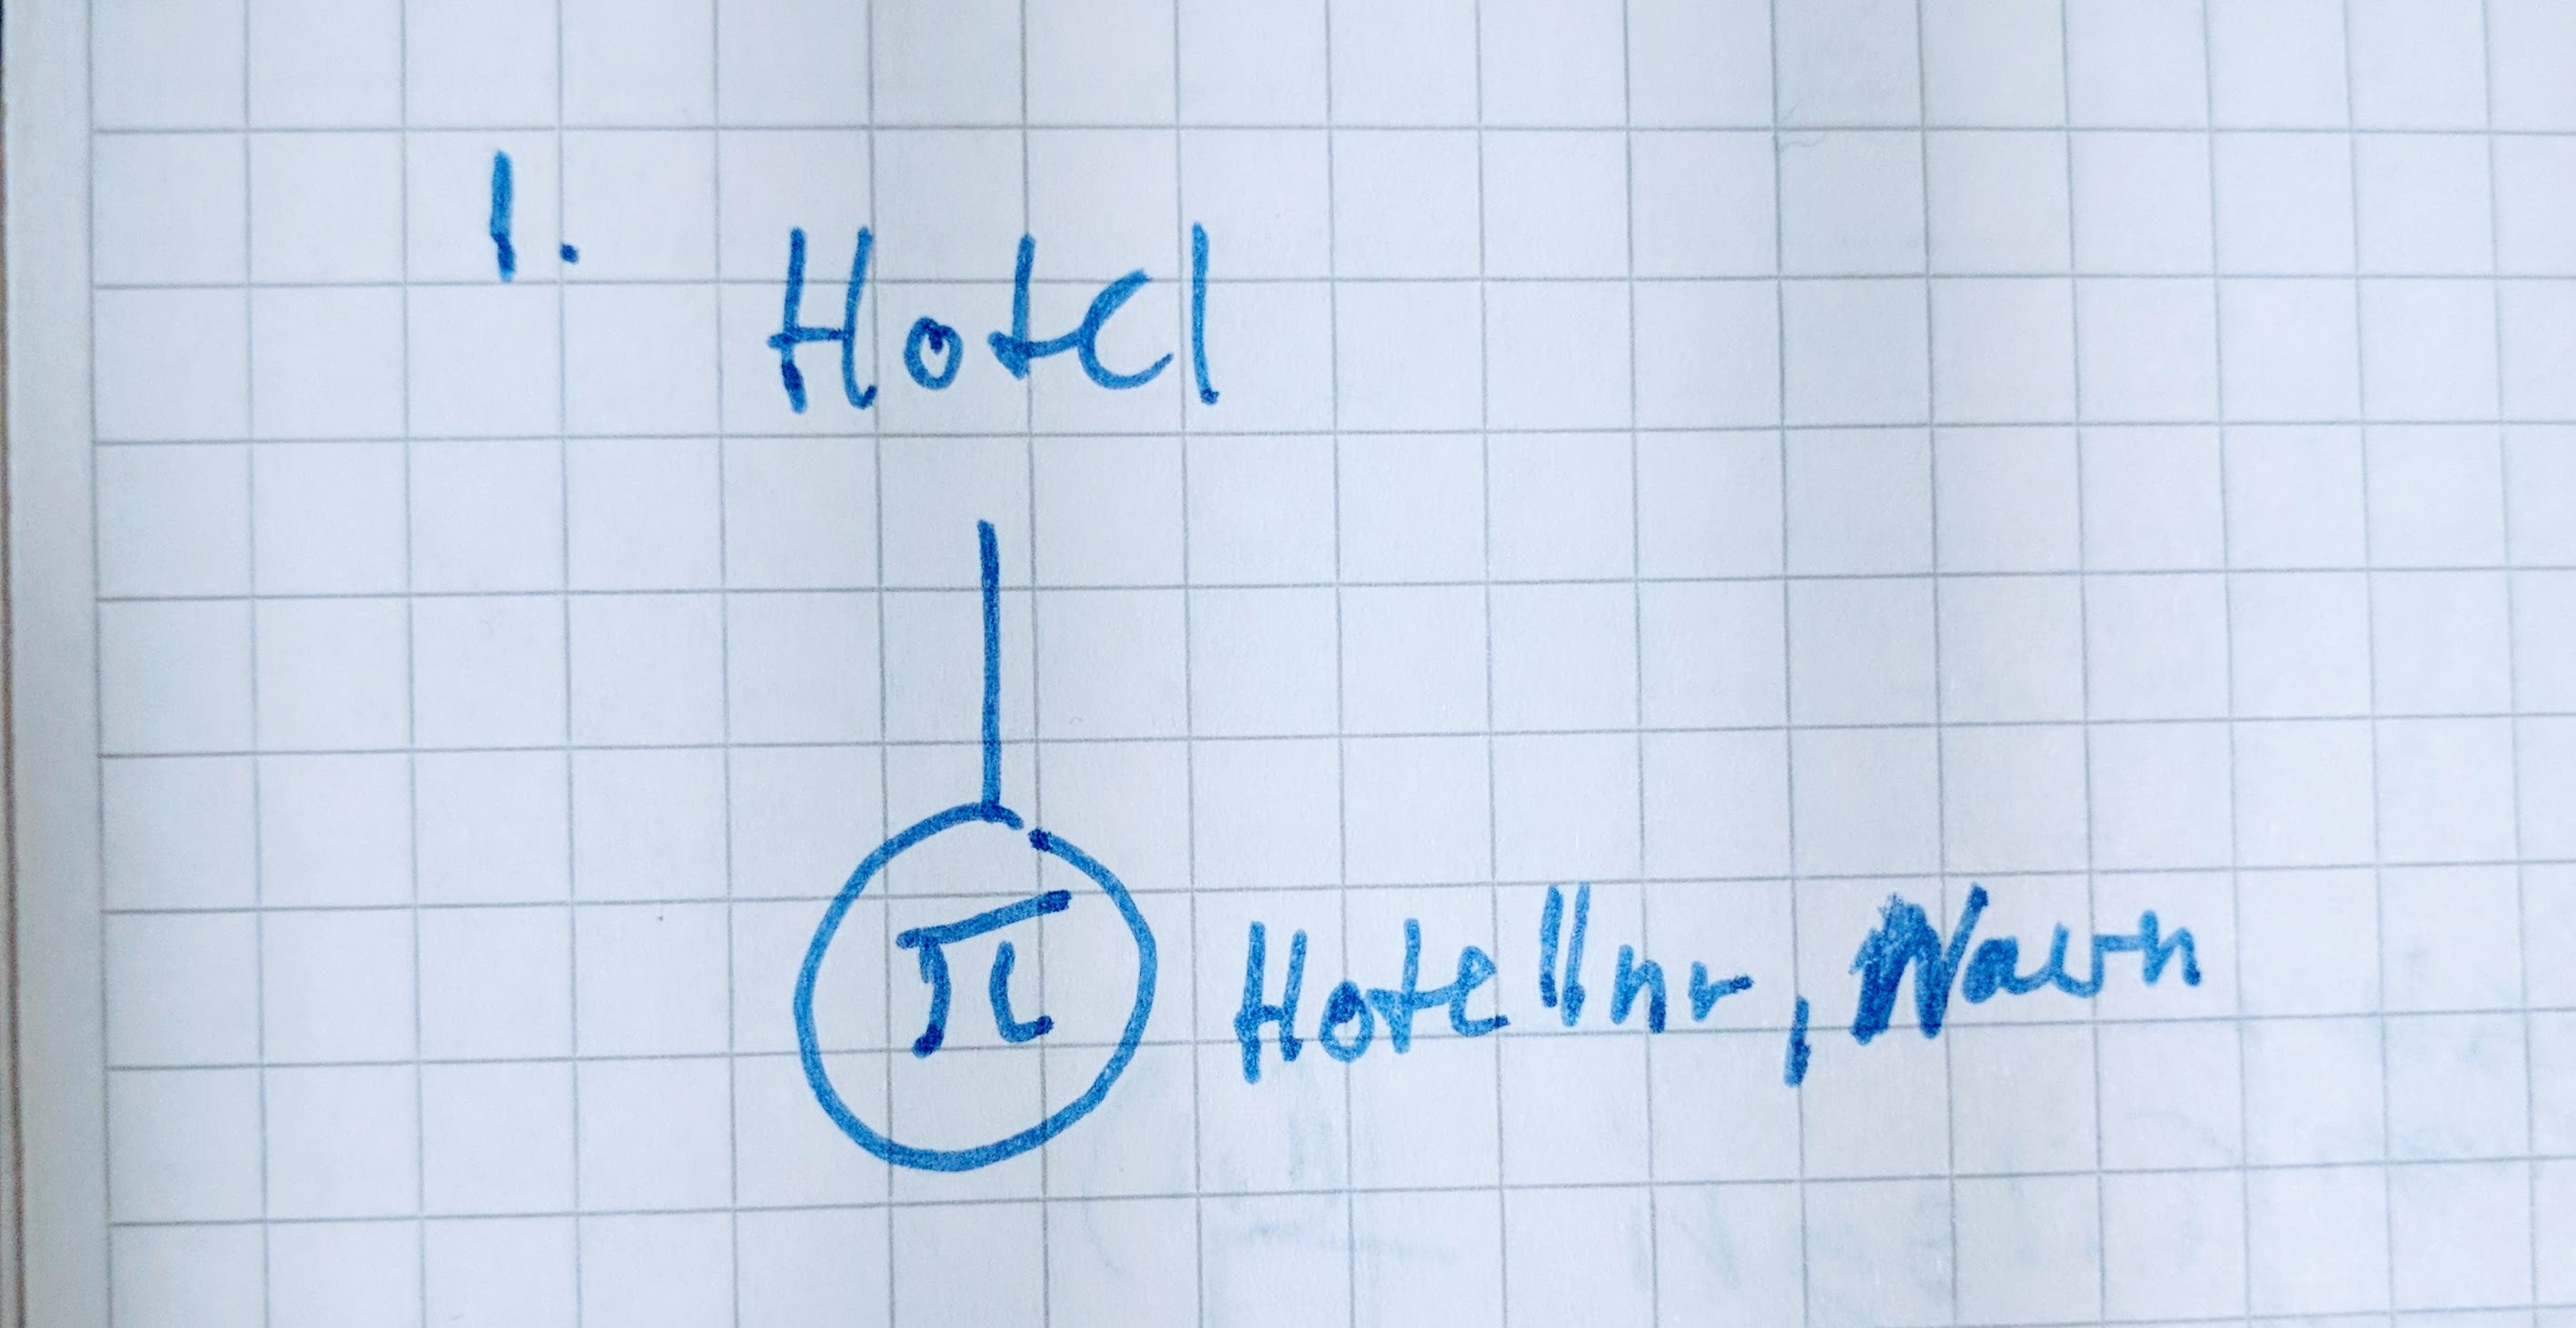 1.
Hotel
π Hotellnr, Navn